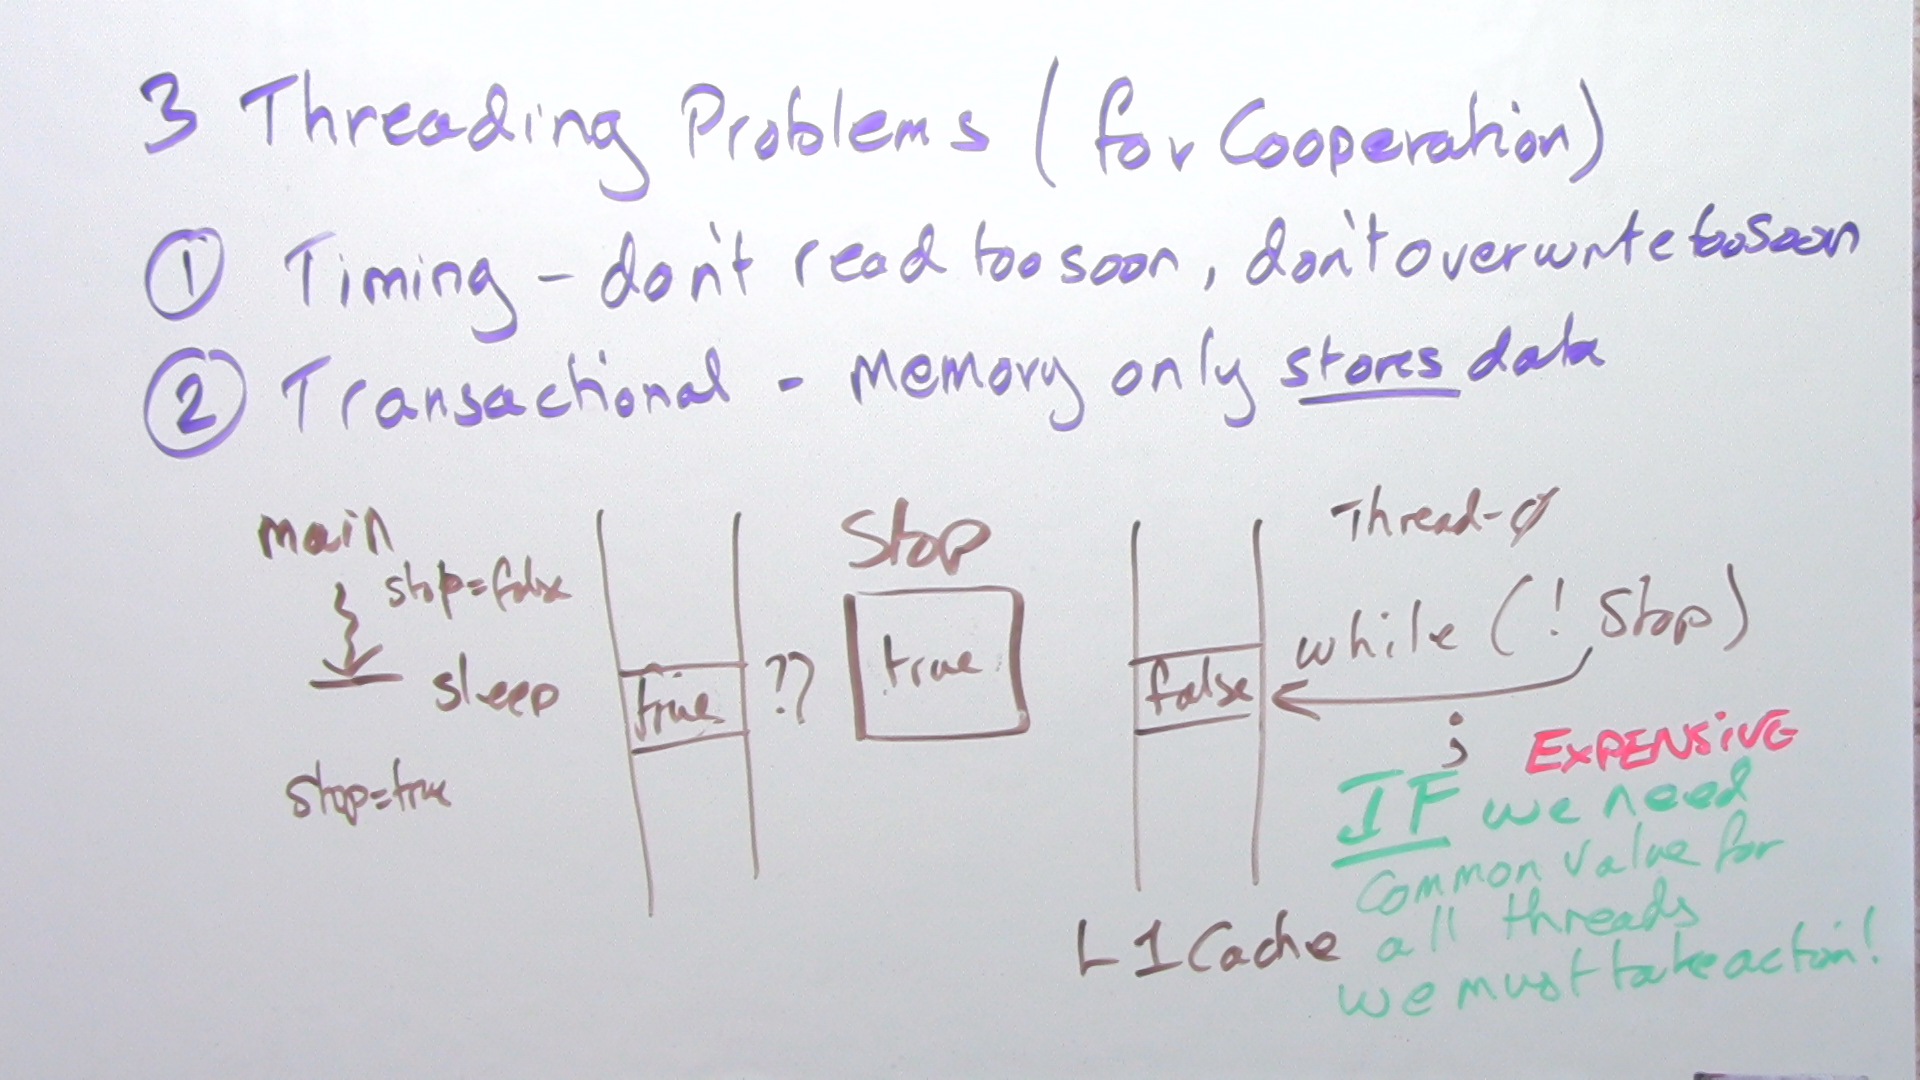 3 Threading Problems (for Cooperation)
① Timing - don't read too soon, don't overwrite too soon
② Transactional - memory only stores data
main
stop=false
sleep
stop=true
true
??
Stop
true
false
Thread-0
while (! Stop)
;
EXPENSIVE
IF we need
common value for
all threads
we must take action!
L1 Cache